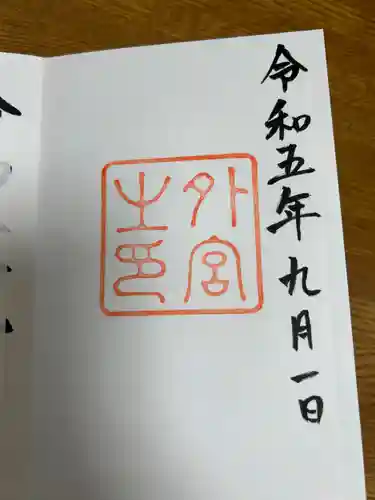 令和五年九月一日
外宮
之印